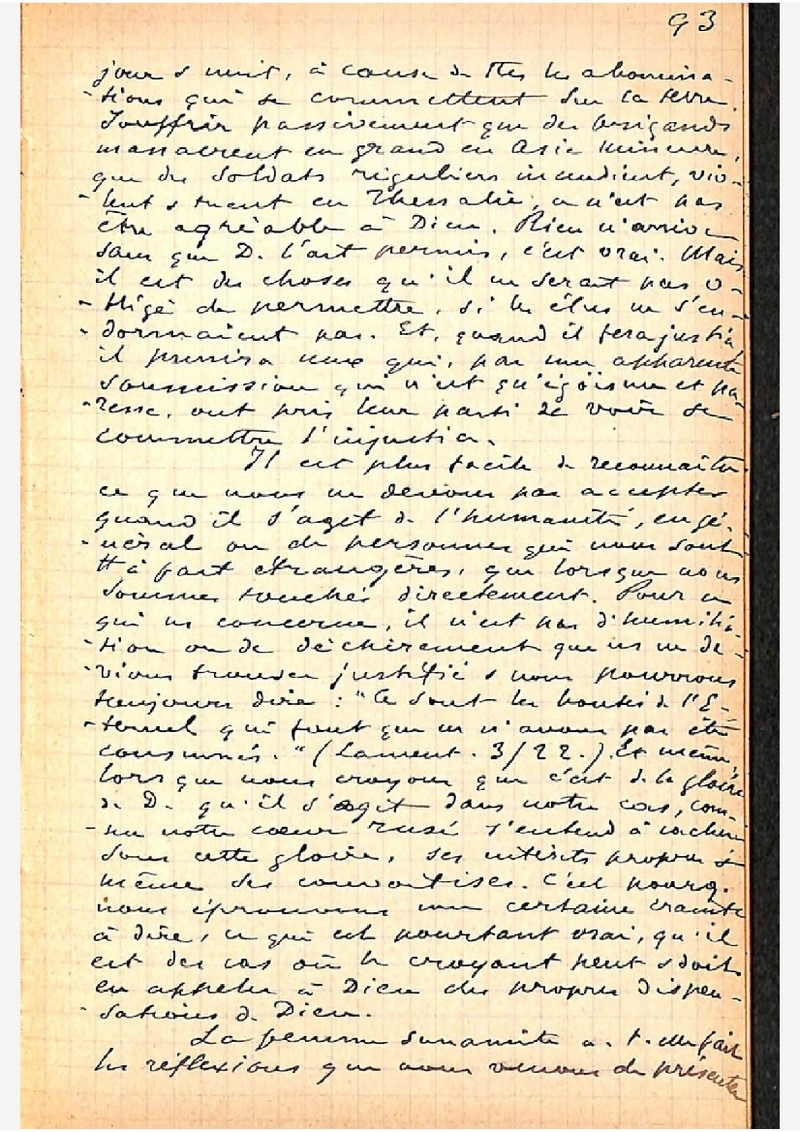 93
jour & nuit, à cause de ttes les abomina-
-tions qui se commettent sur la terre.
Souffrir passivement que des brigands
massacrent en grand en Asie mineure,
que des soldats réguliers incendient, vio-
-lent & tuent en Thessalie, ce n'est pas
être agréable à Dieu. Rien n'arrive
sans que D. l'ait permis, c'est vrai. Mais
il est des choses qu'il ne serait pas o-
-bligé de permettre, si les élus ne s'en-
-dormaient pas. Et, quand il fera justice,
il punira ceux qui, par une apparente
soumission qui n'est qu'égoïsme et pa-
-resse, ont pris leur parti de voir se
commettre l'injustice.
Il est plus facile de reconnaître
ce que nous ne devons pas accepter
quand il s'agit de l'humanité, en gé-
-néral ou de personnes qui nous sont
tt à fait étrangères, que lorsque nous
sommes touchés directement. Pour ce
qui ns concerne, il n'est pas d'humilia-
-tion ou de déchirement que ns ne de-
-vions trouver justifié & nous pourrons
toujours dire : "Ce sont les bontés de l'E-
-ternel qui font que ns n'avons pas été
consumés." (Lament. 3/22.). Et même,
lorsque nous croyons que c'est de la gloire
de D. qu'il s'agit dans notre cas, com-
-me notre cœur rusé s'entend à cacher
sous cette gloire, ses intérêts propres &
même ses convoitises. C'est pourq.
nous éprouvons une certaine crainte
à dire, ce qui est pourtant vrai, qu'il
est des cas où le croyant peut & doit
en appeler à Dieu des propres dispen-
-sations de Dieu.
La femme sunamite a. t. elle fait
les réflexions que nous venons de présenter